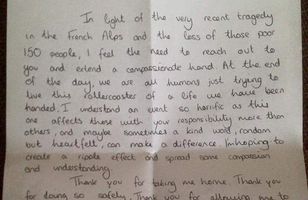 In light of the very recent tragedy
in the French Alps and the loss of those poor
150 people, I feel the need to reach out to
you and extend a compassionate hand. At the end
of the day, we are all humans just trying to
live this rollercoaster of a life we have been
handed. I understand an event so horrific as this
one affects those with your responsibility more than
others, and maybe sometimes a kind word, random
but heartfelt, can make a difference. I'm hoping to
create a ripple effect and spread some compassion
and understanding.
Thank you for taking me home. Thank you
for doing so safely. Thank you for allowing me to